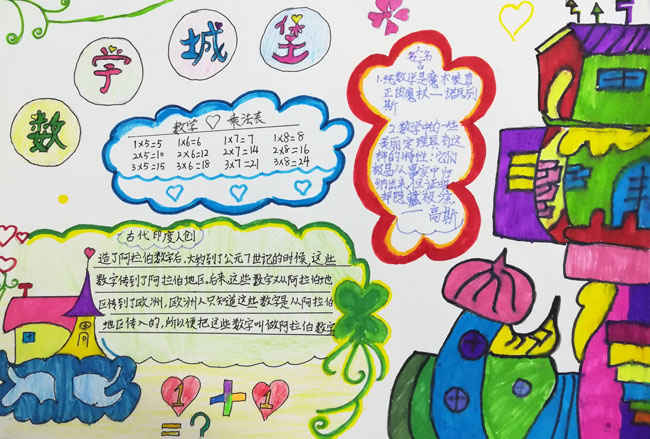 数学城堡
数学♡乘法表
1×5=5 1×6=6 1×7=7 1×8=8
2×5=10 2×6=12 2×7=14 2×8=16
3×5=15 3×6=18 3×7=21 3×8=24
名名言
1.纯数学是魔术家真
正的魔杖——诺瓦列
斯
2.数学中的一些
美丽定理具有这
样的特性:它们
极易从事实中归
纳出来,但证明
却隐藏极深.
——高斯
古代印度人创
造了阿拉伯数字后,大约到了公元7世纪的时候,这些
数字传到了阿拉伯地区。后来,这些数字又从阿拉伯地
区传到了欧洲,欧洲人只知道这些数字是从阿拉伯
地区传入的,所以便把这些数字叫做阿拉伯数字
1+1
=?